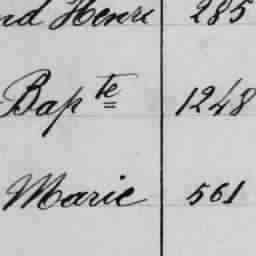 nd Henri 285
Bap te 1248
Marie 561